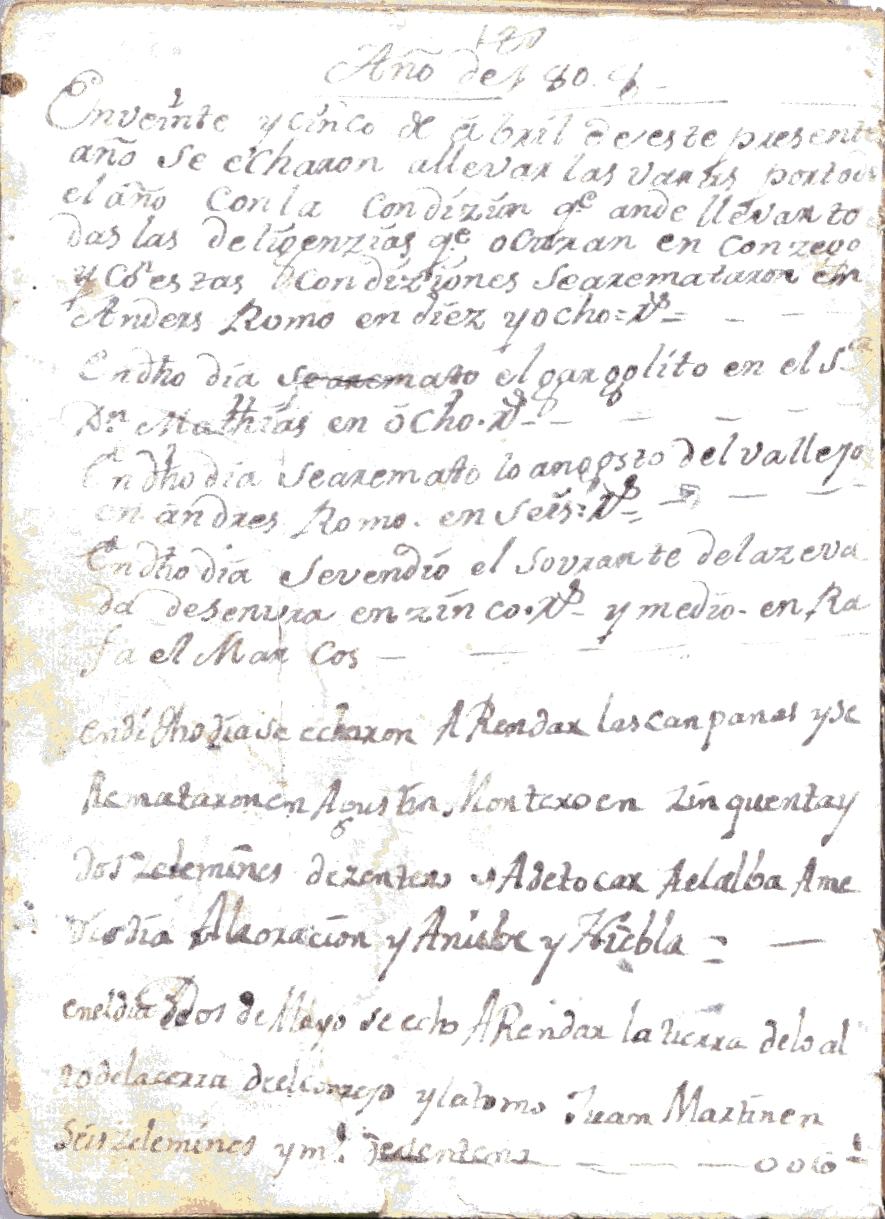 Año de 180
En veinte y cinco de abril de este presente
año se echaron allevar las varas por todo
el año con la condizion qe. ande llevar to
das las deligenzias qe. ocurran en conzejo
y con estas condiziones Searemataron en
Anders Romo en diez y ocho = Rs =
En dho dia searemato el gargolito en el Sr
Dn Mathias en ocho. Rs
En dho dia Searemato lo angosto del vallejo
en andres Romo. en seis = Rs =
En dho dia sevendio el sovrante delazeva
da en zinco. Rs y medio. en Ra
fa el Mar cos
en dicho dia se echaron A Rendar las canpanas y se
Remataron en Agustin Montero en zinquenta y
dos zelemines dezenteno Adetocar Aelalba Ame
diodia Alaoracion y Anube y Niebla =
eneldia dos de Mayo se echo A Rendar la tierra delo al
to delacerra deelconzejo y latomo Juan Martin en
Seis zelemines y mo. dezenteno